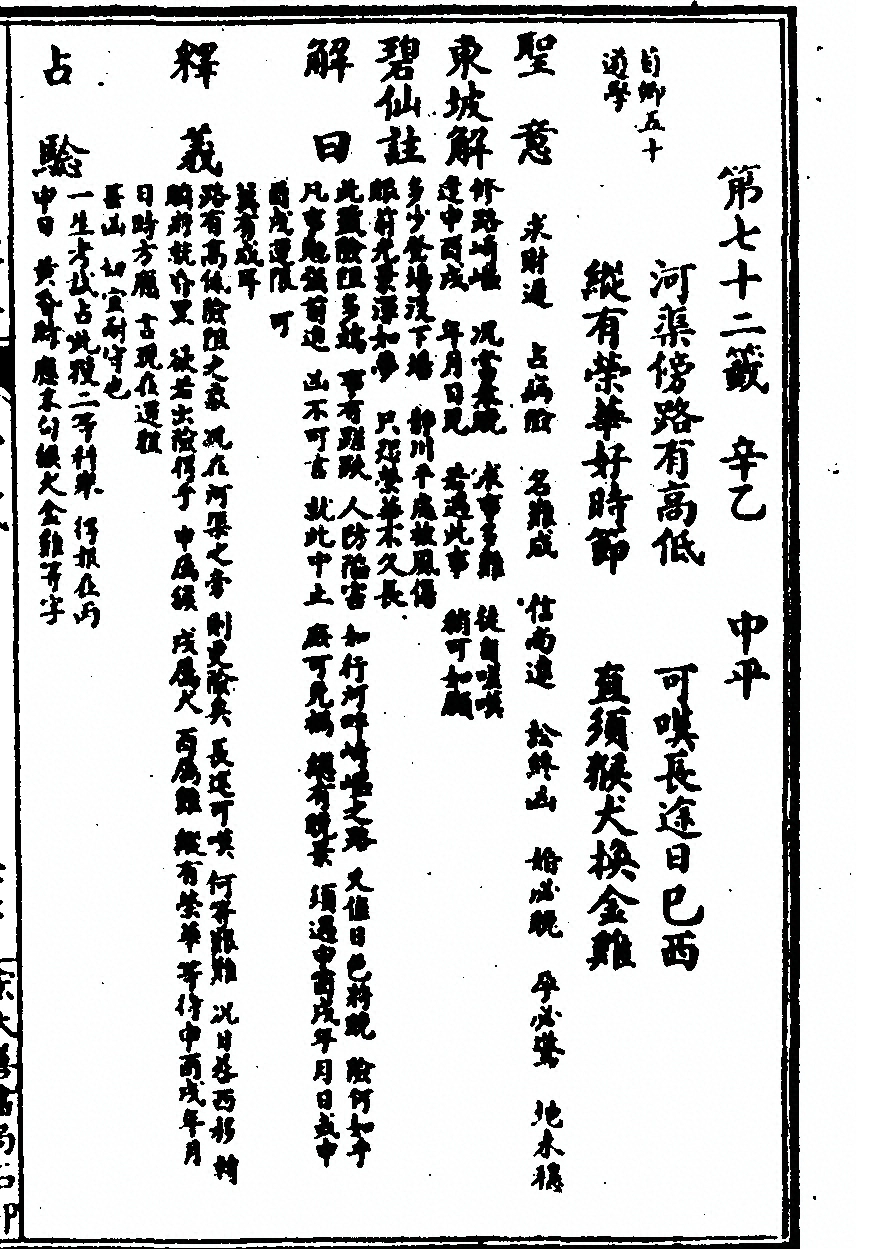 第七十二籤 辛乙 中平
河渠傍路有高低 可嘆長途日已西
縱有榮華好時節 直須猴犬換金雞
聖意 求財遲 占病險 名難成 信尚遠 訟終凶 婚必晚 孕必驚 地未穩
東坡解 修路崎嶇 況當暮晚 求事多難 徒自嗟嘆
逢申酉戌 年月日見 若遇此事 稍可如願
碧仙註 多少登場沒下場 柳川平處被風傷
眼前光景渾如夢 只恐榮華不久長
解曰 此籤險阻多端 事有蹉跌 人防陷害 如行河畔崎嶇之路 又值日色將晚 險何如乎
凡事勉強前進 凶不可言 就此中止 庶可免禍 縱有晚景 須遇申酉戌年月日或申
酉戌運限 可
冀有成耳
釋義 路有高低險阻之象 況在河渠之旁 則更險矣 長途可嘆 何等艱難 況日居西移 轉
瞬將就昏黑 欲若出險得乎 申屬猴 戌屬犬 酉屬雞 縱有榮華 等待申酉戌年月
日時方應 言現在運雖
甚凶 切宜耐守也
占驗 一生考試占此 獲二等科舉 得報在丙
申日 黃昏時 應末句猴犬金雞等字